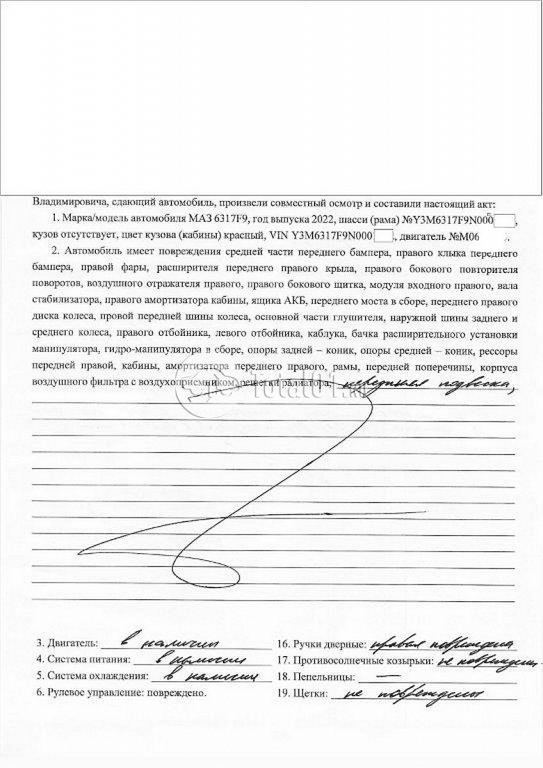 Владимировича, сдающий автомобиль, произвели совместный осмотр и составили настоящий акт:
1. Марка/модель автомобиля МАЗ 6317F9, год выпуска 2022, шасси (рама) №Y3M6317F9N000 ,
кузов отсутствует, цвет кузова (кабины) красный, VIN Y3M6317F9N000 , двигатель №М06 .
2. Автомобиль имеет повреждения средней части переднего бампера, правого клыка переднего
бампера, правой фары, расширителя переднего правого крыла, правого бокового повторителя
поворотов, воздушного отражателя правого, правого бокового щитка, модуля входного правого, вала
стабилизатора, правого амортизатора кабины, ящика АКБ, переднего моста в сборе, переднего правого
диска колеса, провой передней шины колеса, основной части глушителя, наружной шины заднего и
среднего колеса, правого отбойника, левого отбойника, каблука, бачка расширительного установки
манипулятора, гидро-манипулятора в сборе, опоры задней – коник, опоры средней – коник, рессоры
передней правой, кабины, амортизатора переднего правого, рамы, передней поперечины, корпуса
воздушного фильтра с воздухоприемником, решетки радиатора, передняя подвеска,
Total01.ru
3. Двигатель: в наличии
4. Система питания: в наличии
5. Система охлаждения: в наличии
6. Рулевое управление: повреждено.
16. Ручки дверные: правая повреждена
17. Противосолнечные козырьки: не повреждены
18. Пепельницы: —
19. Щетки: не повреждены